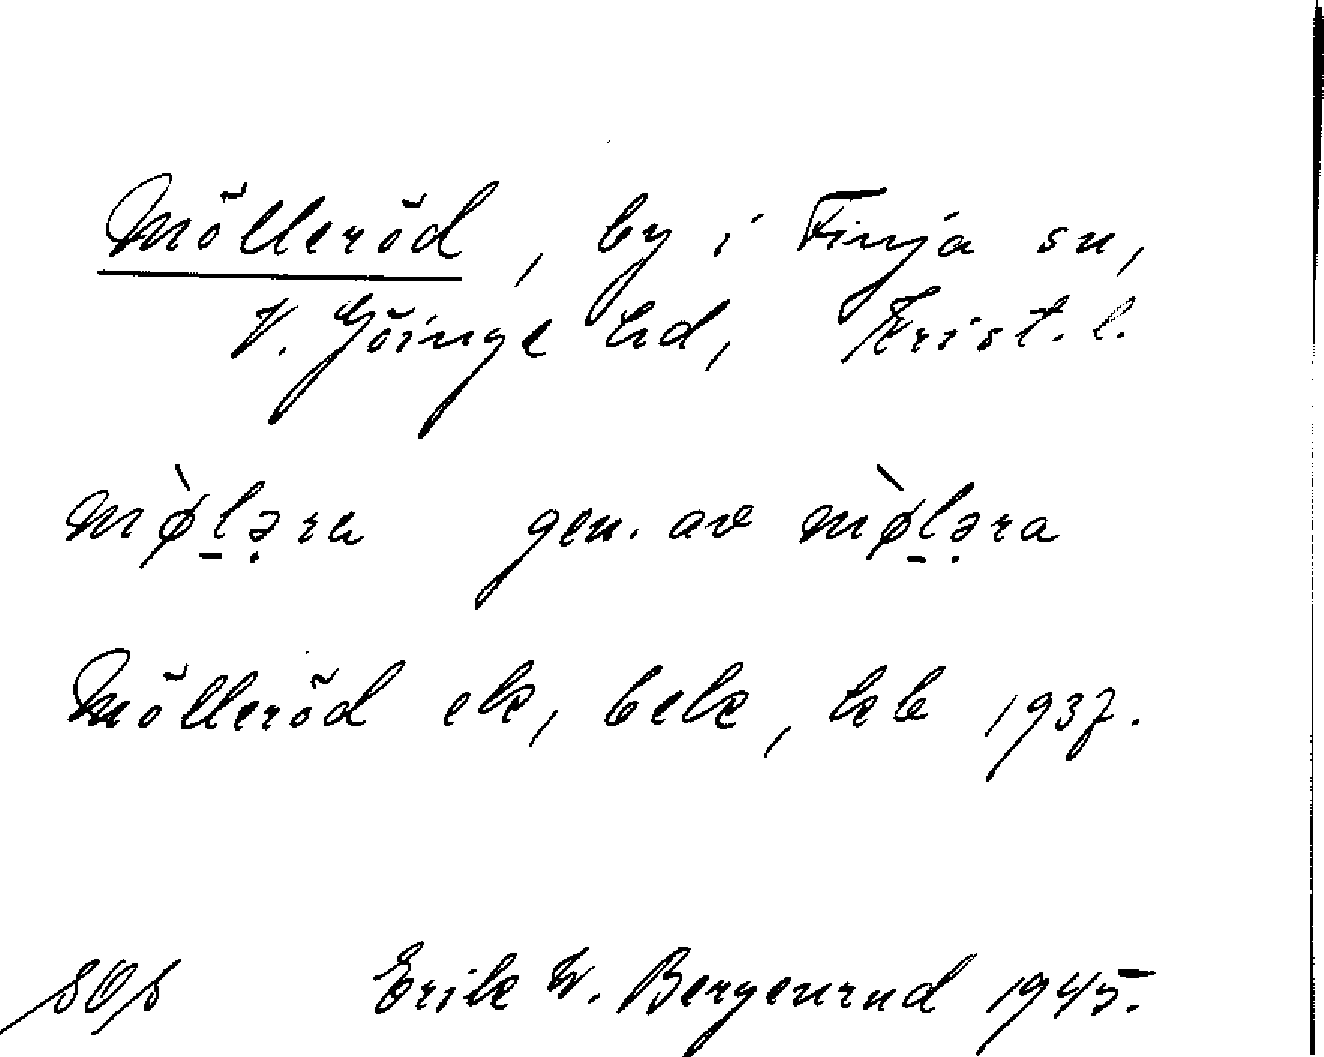 Mölleröd, by i Finja sn,
V. Göinge hd, Krist. l.
mø̀l̠ə̣ra gen. av mø̀l̠ə̣ra
Mölleröd ek, bek, kb 1937.
SOÄ Erik W. Bergenrud 1945.